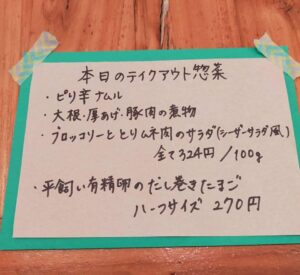 本日のテイクアウト惣菜
・ピリ辛ナムル
・大根・厚あげ・豚肉の煮物
・ブロッコリーととりムネ肉のサラダ(シーザーサラダ風)
全て324円/100g
・平飼い有精卵のだし巻きたまご
ハーフサイズ 270円